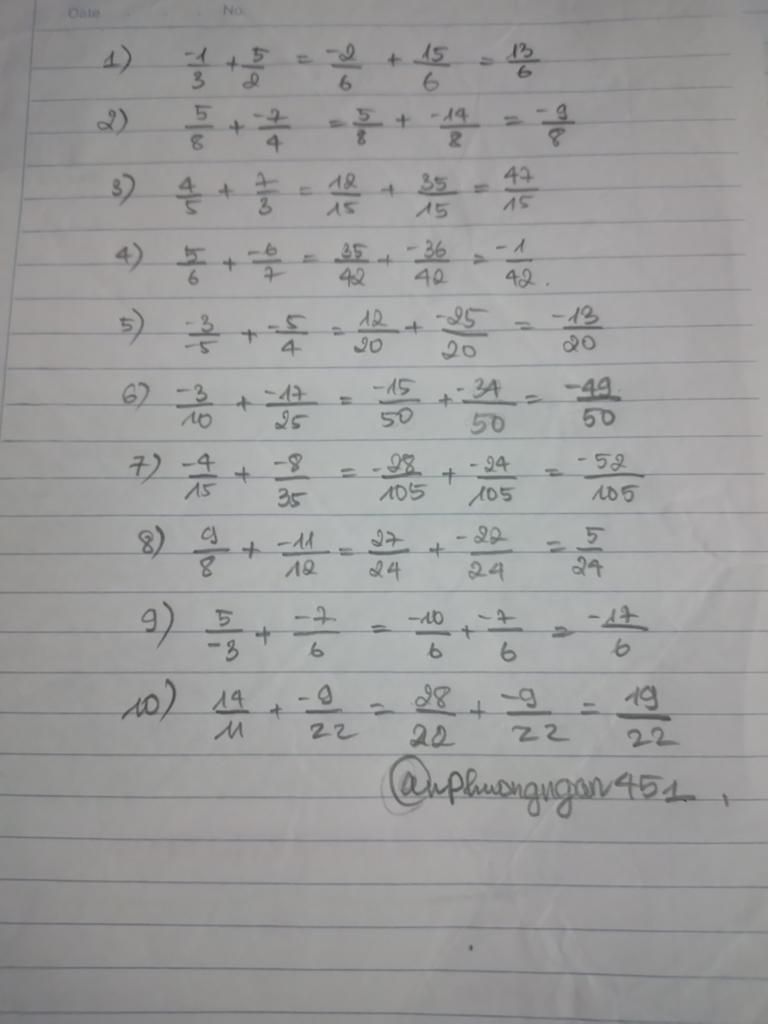 Date No.
1) -1/3 + 5/2 = -2/6 + 15/6 = 13/6
2) 5/8 + -7/4 = 5/8 + -14/8 = -9/8
3) 4/5 + 7/3 = 12/15 + 35/15 = 47/15
4) 5/6 + -6/7 = 35/42 + -36/42 = -1/42.
5) -3/-5 + -5/4 = 12/20 + -25/20 = -13/20
6) -3/10 + -17/25 = -15/50 + -34/50 = -49/50
7) -4/15 + -8/35 = -28/105 + -24/105 = -52/105
8) 9/8 + -11/12 = 27/24 + -22/24 = 5/24
9) 5/-3 + -7/6 = -10/6 + -7/6 = -17/6
10) 14/11 + -9/22 = 28/22 + -9/22 = 19/22